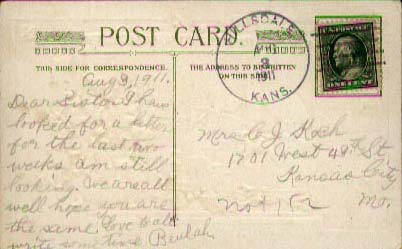 POST CARD.
THIS SIDE FOR CORRESPONDENCE.
THE ADDRESS TO BE WRITTEN
ON THIS SIDE
HILLSDALE
AUG
3
1911
KANS.
U.S. POSTAGE
ONE CENT
Aug 3, 1911.
Dear Sister I have
looked for a letter
for the last two
weeks am still
looking. We are all
well hope you are
the same. Love to all
write some time Beulah.
Mrs C J Koch
1701 West 48th St
Kansas City
Mo.